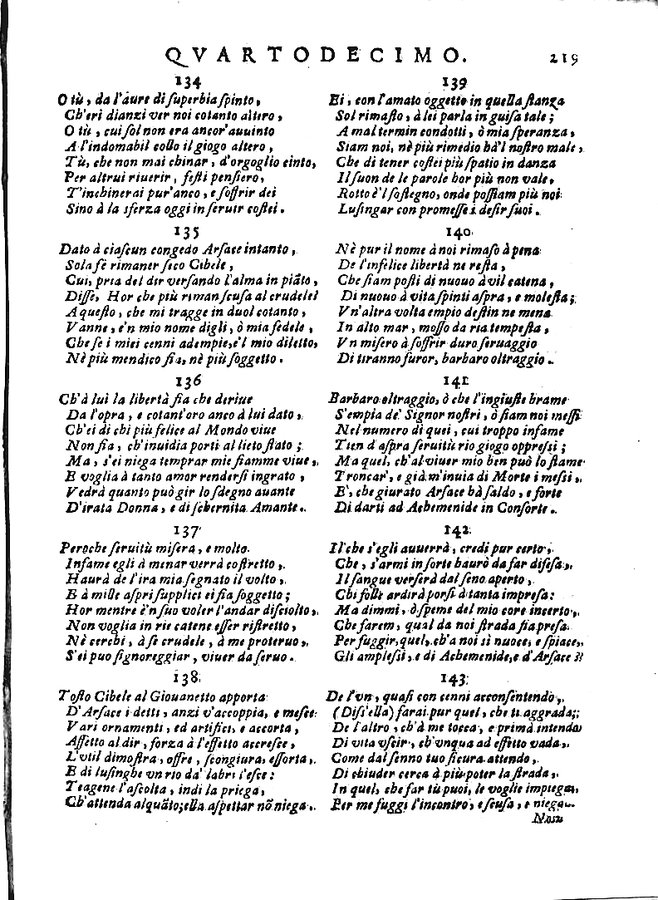 QVARTODECIMO. 219
134
O tù, da l'aure di ſuperbia ſpinto,
Ch'eri dianzi ver noi cotanto altero,
O tù, cui ſol non era ancor'auuinto
A l'indomabil collo il giogo altero,
Tù, che non mai chinar, d'orgoglio cinto,
Per altrui riuerir, feſti penſiero,
T'inchinerai pur'anco, e ſoffrir dei
Sino à la sferza oggi in ſeruir coſtei.
135
Dato à ciaſcun congedo Arſace intanto,
Sola fè rimaner ſeco Cibele,
Cui, pria del dir verſando l'alma in piãto,
Diſſe, Hor che più riman ſcuſa al crudele?
A queſto, che mi tragge in duol cotanto,
Vanne, e'n mio nome digli, ò mia fedele,
Che ſe i miei cenni adempie, e'l mio diletto,
Nè più mendico fia, nè più ſoggetto.
136
Ch'à lui la libertà fia che deriue
Da l'opra, e cotant'oro anco à lui dato,
Ch'ei di chi più felice al Mondo viue
Non fia, ch'inuidia porti al lieto ſtato;
Ma, s'ei niega temprar mie fiamme viue,
E voglia à tanto amor renderſi ingrato,
Vedrà quanto può gir lo ſdegno auante
D'irata Donna, e di ſchernita Amante.
137
Peroche ſeruitù miſera, e molto
Infame egli à menar verrà coſtretto,
Haurà de l'ira mia ſegnato il volto,
E à mille aſpri ſupplici ei fia ſoggetto;
Hor mentre è'n ſuo voler l'andar diſciolto,
Non voglia in rie catene eſſer riſtretto,
Nè cerchi, à ſe crudele, à me proteruo,
S'ei puo ſignoreggiar, viuer da ſeruo.
138
Toſto Cibele al Giouanetto apporta
D'Arſace i detti, anzi v'accoppia, e meſce
Vari ornamenti, ed artifici, e accorta,
Aſſetto al dir, forza à l'effetto accreſce,
L'vtil dimoſtra, offre, ſcongiura, eſſorta,
E di luſinghe vn rio da' labri l'eſce:
Teagene l'aſcolta, indi la priega,
Ch'attenda alquãto; ella aſpettar nõ niega.
139
Ei, con l'amato oggetto in quella ſtanza
Sol rimaſto, à lei parla in guiſa tale;
A mal termin condotti, ò mia ſperanza,
Siam noi, nè più rimedio hà'l noſtro male,
Che di tener coſtei più ſpatio in danza
Il ſuon de le parole hor più non vale,
Rotto è'l ſoſtegno, onde poſſiam più noi
Luſingar con promeſſe i deſir ſuoi.
140
Nè pur il nome à noi rimaſo à pena
De l'infelice libertà ne reſta,
Che ſiam poſti di nuouo à vil catena,
Di nuouo à vita ſpinti aſpra, e moleſta;
Vn'altra volta empio deſtin ne mena
In alto mar, moſſo da ria tempeſta,
Vn miſero à ſoffrir duro ſeruaggio
Di tiranno furor, barbaro oltraggio.
141
Barbaro oltraggio, ò che l'ingiuſte brame
S'empia de' Signor noſtri, ò ſiam noi meſſi
Nel numero di quei, cui troppo infame
Tien d'aſpra ſeruitù rio giogo oppreſſi;
Ma quel, ch'al viuer mio ben può lo ſtame
Troncar, e già m'inuia di Morte i meſſi,
E', che giurato Arſace hà ſaldo, e forte
Di darti ad Achemenide in Conſorte.
142
Il che s'egli auuerrà, credi pur certo,
Che, s'armi in ſorte haurò da far difeſa,
Il ſangue verſerà dal ſeno aperto,
Chi folle ardirà porſi à tanta impreſa:
Ma dimmi, ò ſpeme del mio core incerto,
Che farem, qual da noi ſtrada ſia preſa,
Per fuggir quel, ch'a noi sì nuoce, e ſpiace,
Gli ampleſſi, e di Achemenide, e d'Arſace?
143
De l'vn, quaſi con cenni acconſentendo,
(Diſs'ella) farai pur quel, che ti aggrada;
De l'altro, ch'à me tocca, e prima intendo
Di vita vſcir, ch'vnqua ad effetto vada,
Come dal ſenno tuo ſicura attendo,
Di chiuder cerca à più poter la ſtrada,
In quel, che far tù puoi, le voglie impiega,
Per me fuggi l'incontro, e ſcuſa, e niega.